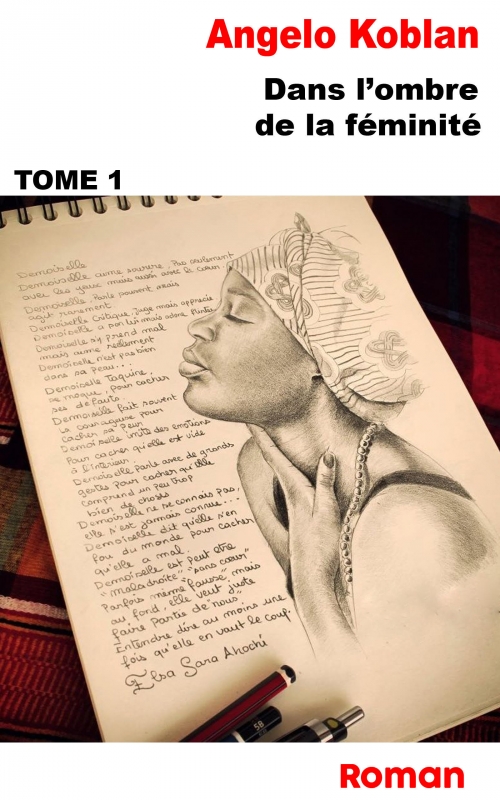 Angelo Koblan
Dans l'ombre
de la féminité
TOME 1
Demoiselle
Demoiselle aime sourire, Pas seulement
avec les yeux mais aussi avec le cœur.
Demoiselle Parle souvent mais
agit rarement
Demoiselle critique, juge mais apprécie
Demoiselle a bon lui mais adore
Demoiselle s'y prend mal
mais aime réellement
Demoiselle n'est pas bien
dans sa peau...
Demoiselle Taquine,
se moque, pour cacher
ses défauts.
Demoiselle fait souvent
la courageuse pour
cacher sa Peur
Demoiselle imite des émotions
Pour cacher qu'elle est vide
à l'intérieur.
Demoiselle Parle avec de grands
gestes pour cacher qu'elle
comprend un peu trop
bien de choses
Demoiselle ne se connais pas,
elle s'est jamais connue...
Demoiselle dit qu'elle s'en
fou du monde pour cacher
qu'elle a mal.
Demoiselle est peut être
"Maladroite" "sans cœur"
Parfois même "fausse" mais
au fond, elle veut juste
faire Partie de "nous"
Entendre dire au moins une
fois qu'elle en vaut le coup.
Elsa Sara Ahochi
5B
Roman